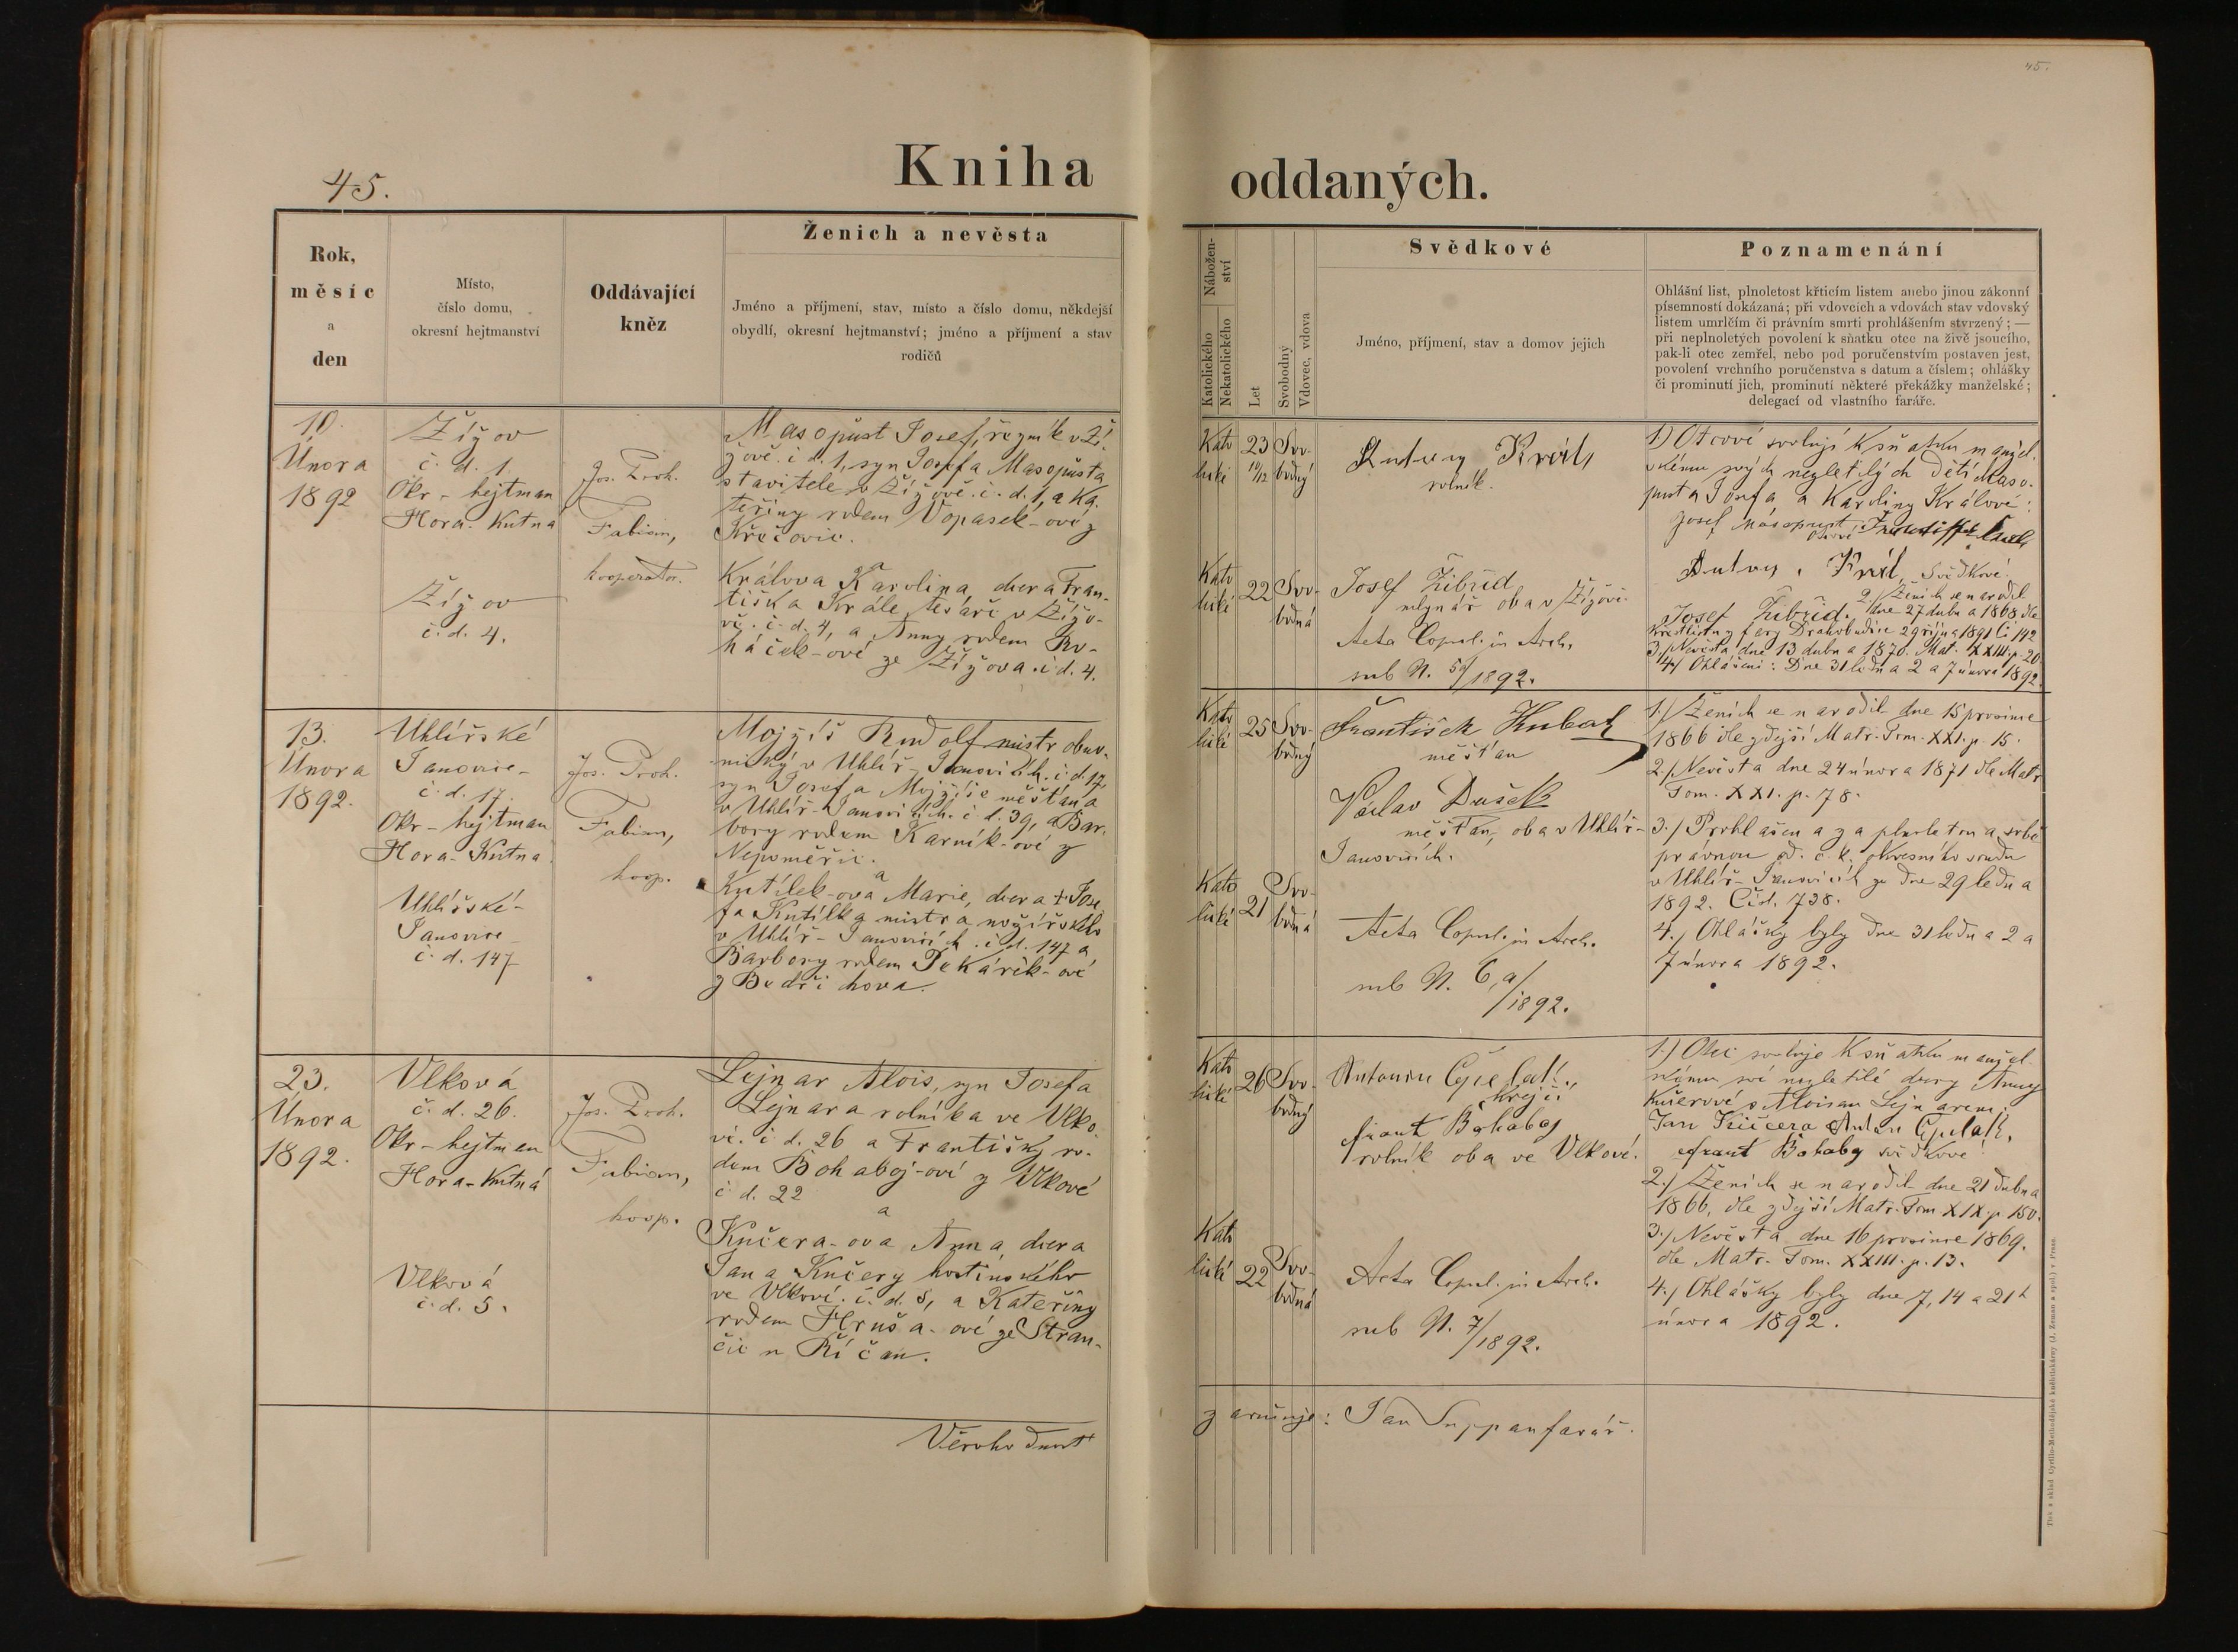 45.
45.
Kniha oddaných.
Rok,
měsíc
a
den
Místo,
číslo domu,
okresní hejtmanství
Oddávající
kněz
Ženich a nevěsta
Jméno a příjmení, stav, místo a číslo domu, někdejší
obydlí, okresní hejtmanství; jméno a příjmení a stav
rodičů
Nábožen-
ství
Katolického
Nekatolického
Let
Svobodný
Vdovec, vdova
Svědkové
Jméno, příjmení, stav a domov jejich
Poznamenání
Ohlášní list, plnoletost křticím listem anebo jinou zákonní
písemností dokázaná; při vdovcích a vdovách stav vdovský
listem umrlčím či právním smrti prohlášením stvrzený; —
při neplnoletých povolení k sňatku otce na živě jsoucího,
pak-li otec zemřel, nebo pod poručenstvím postaven jest,
povolení vrchního poručenstva s datum a číslem; ohlášky
či prominutí jich, prominutí některé překážky manželské;
delegací od vlastního faráře.
10.
Února
1892
Žížov
č. d. 1.
Okr - hejtman
Hora. Kutna
Žížov
č. d. 4.
Jos. Proh.
Fabian,
kooperator.
Masopust Josef, řezník v Ží-
žově. č d. 1, syn Josefa Masopusta
stavitele v Žížově. č. d. 1, a Ka-
teřiny rodem Vopasek-ové z
Křečovic.
a
Králova Karolina, dcera Fran-
tiška Krále tesaře v Žížo-
vě. č. d. 4, a Anny rodem Ro-
háček-ové ze Žížova. č d. 4.
Kato
lické
23
10/12
Svo-
bodný
Kato
lické
22
Svo-
bodná
Antony Král,
rolník.
Josef Zibřid
mlynář oba v Žížově.
Acta Copul. in Arch.
sub N. 5a/1892.
1.) Otcové svolují k sňatku manžel-
skému svých nezletilých dětí Maso-
pusta Josefa a Karoliny Králové:
Josef Masopust, František Král
Otcové
Antony Král, Svědkové.
Josef Zibřid.
2./ Ženich se narodil
dne 27 dubna 1868 dle
Křestlistu z fary Drahobudice 29 října 1891 Či 142
3./ Nevěsta dne 13 dubna 1870. Mat. XXIII. p. 20.
4./ Ohlášení: Dne 31 ledna 2 a 7 února 1892.
13.
Února
1892.
Uhlířské
Janovice-
č. d. 17.
Okr - hejtman
Hora - Kutna
Uhlířské-
Janovice
č. d. 147
Jos. Proh.
Fabian,
koop.
Mojžíš Rudolf mistr obuv-
nický v Uhlíř-Janovicích. č. d. 17,
syn Josefa Mojžíše měšťana
v Uhlíř-Janovicích. č d. 39, a Bar-
bory rodem Karník-ové z
Nepoměřic.
a
Kutílek-ova Marie, dcera † Jose-
fa Kutílka mistra nožířského
v Uhlíř-Janovicích. č d. 147 a
Barbory rodem Pekárek-ové
z Bedřichova.
Kato
lické
25
Svo-
bodný
Kato
lické
21
Svo-
bodná
František Kubat
měšťan
Václav Dušek
měšťan, oba v Uhlíř-
Janovicích.
Acta Copul. in Arch.
sub N. 6,a/1892.
1./ Ženich se narodil dne 15 prosince
1866 dle zdejší Matr. Tom. XXI. p. 15.
2./ Nevěsta dne 24 února 1871 dle Matr
Tom. XXI. p. 78.
3./ Prohlášena za plnoletou a sobě
právnou od. c. k. okresního soudu
v Uhlíř-Janovicích ze dne 29 ledna
1892. Čisl. 738.
4./ Ohlášky byly dne 31 ledna 2 a
7 února 1892.
23.
Února
1892.
Vlková
č. d. 26.
Okr - hejtman
Hora - Kutná
Vlková
č. d. 5.
Jos. Proh.
Fabian,
koop.
Lejnar Alois, syn Josefa
Lejnara rolníka ve Vlko-
vé. č d. 26 a Františky ro-
dem Bohaboj-ové z Vlkové
č d. 22
a
Kučera-ova Anna, dcera
Jana Kučery hostinského
ve Vlkové. č. d. 5, a Kateřiny
rodem Hruša-ové ze Stran-
čic u Říčan.
Kato
lické
26
Svo-
bodný
Kato
lické
22
Svo-
bodná
Antonín
krejčí
frant Bohaboj
rolník oba ve Vlkové.
Acta Copul. in Arch.
sub N. 7/1892.
1.) Otec svoluje k sňatku manžel-
skému své nezletilé dcery Anny
Kučerové s Aloisem Lejnarem:
Jan Kučera Anton
frant Bohaboj svědkové
2./ Ženich se narodil dne 21 dubna
1866, dle zdejší Matr. Tom XIX. p. 150.
3./ Nevěsta dne 16 prosince 1869.
dle Matr. Tom. XXIII. p. 13.
4./ Ohlášky byly dne 7, 14 a 21
února 1892.
Věrohodnost zaručuje: Jan Suppan farář.
Tisk a sklad Cyrillo-Methodějské knihtiskárny (J. Zeman a spol.) v Praze.